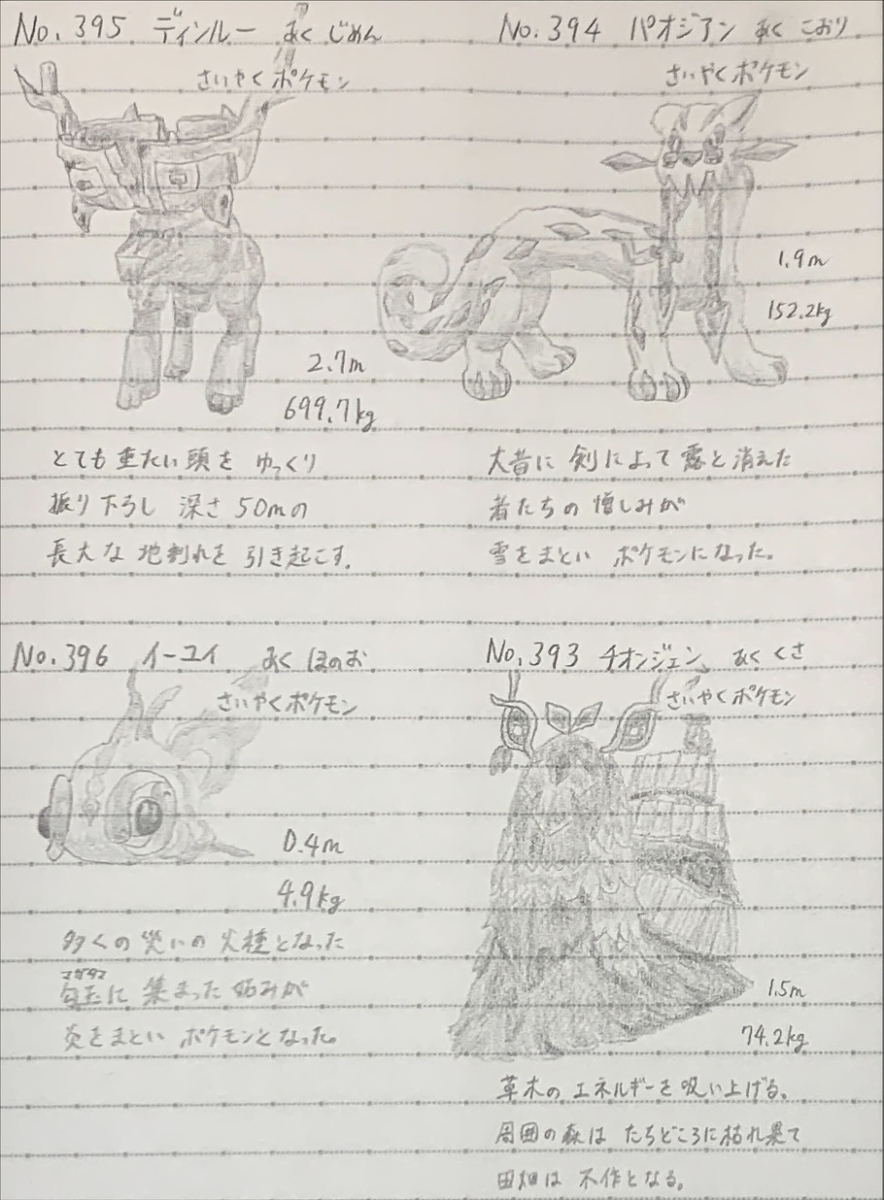 No.395 ディンルー あく じめん
さいやくポケモン
2.7m
699.7kg
とても重たい頭を ゆっくり
振り下ろし 深さ 50mの
長大な 地割れを 引き起こす.
No.394 パオジアン あく こおり
さいやくポケモン
1.9m
152.2kg
大昔に 剣によって 露と消えた
者たちの 憎しみが
雪をまとい ポケモンになった。
No.396 イーユイ あく ほのお
さいやくポケモン
0.4m
4.9kg
多くの 災いの 火種となった
マガタマ
勾玉に 集まった 妬みが
炎をまとい ポケモンとなった。
No.393 チオンジェン あく くさ
さいやくポケモン
1.5m
74.2kg
草木の エネルギーを 吸い上げる。
周囲の森は たちどころに枯れ果て
田畑は 不作となる。